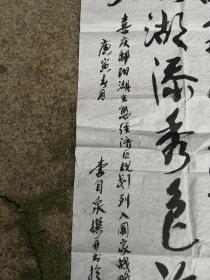 湖添秀色
喜庆鄱阳湖生态经济区规划列入国家战略
庚寅春月
李目泉撰并书于